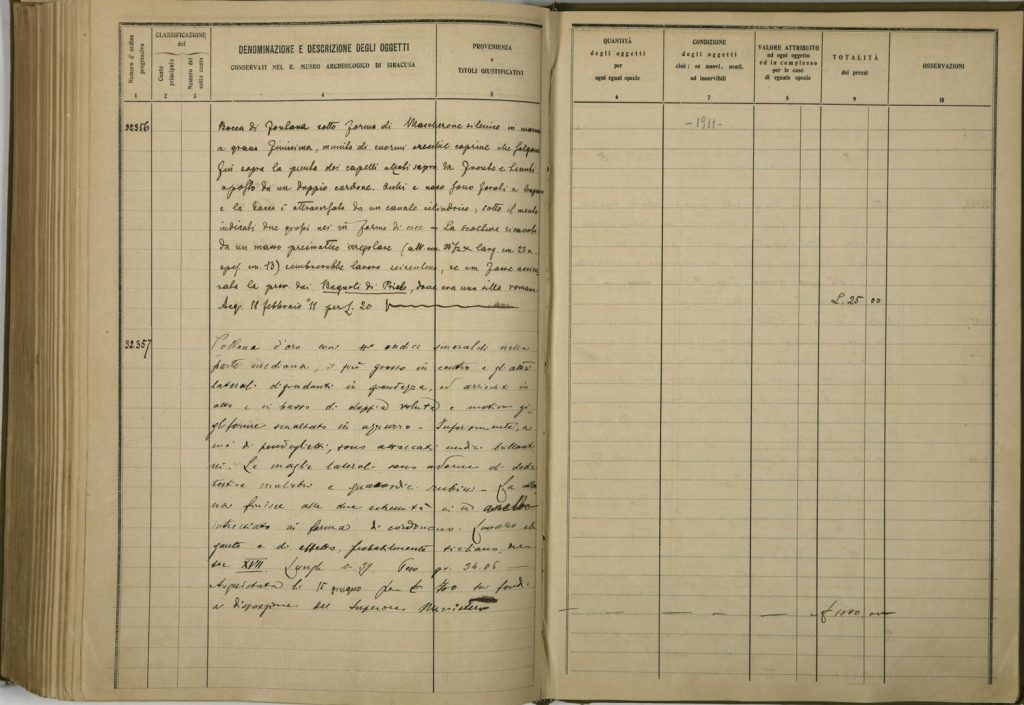 Numero d'ordine progressivo
CLASSIFICAZIONE
del
Conto principale
Numero del sotto conto
DENOMINAZIONE E DESCRIZIONE DEGLI OGGETTI
CONSERVATI NEL R. MUSEO ARCHEOLOGICO DI SIRACUSA
PROVENIENZA
e
TITOLI GIUSTIFICATIVI
1 2 3 4 5
32356
Bocca di fontana sotto forma di Mascherone silenico in marmo
a grana finissima, munito di enormi orecchie caprine che salgono
fin sopra la punta dei capelli alzati sopra la fronte e tenuti
a posto da un doppio cordone. Occhi e naso sono forati a trapano
e la bocca è attraversata da un canale cilindrico; sotto il mento
indicati due grossi nei in forma di cece – La scultura ricavata
da un marmo prismatico irregolare (alt. cm. larg. cm. 23 x
spes. cm. 13) sembrerebbe lavoro seicentino, se non fosse
la prov. dai Bagnoli di Priolo, dove era una villa romana
Acq. 11 febbraio '11 per L. 20
32357
Collana d'oro con undici smeraldi nella
parte mediana, il più grosso in centro e gli altri
laterali digradanti in grandezza, ed
alto e in basso di doppia voluta e motivo gi-
gliforme smaltato in azzurro – Inferiormente, a
mo' di pendaglietti, sono attaccati undici brillanti-
ni. Le maglie laterali sono adorne di dodi
testine muliebri e quattordici rubini – La colla
na finisce alle due estremità in un anello
intrecciato in forma di cordoncino. Lavoro ele
gante e di effetto, probabilmente siciliano, del
sec XVII. Lungh. 0. 39. Peso gr. 34.06. —
Acquistata li 15 giugno per £ su fondi
a disposizione del Superiore Ministero
QUANTITÀ
degli oggetti
per
ogni egual specie
CONDIZIONE
degli oggetti
cioè: se nuovi, usati,
od inservibili
VALORE ATTRIBUITO
ad ogni oggetto
ed in complesso
per le cose
di eguale specie
TOTALITÀ
dei prezzi
OSSERVAZIONI
6 7 8 9 10
– 1911 –
L. 25 00
£ 1000.